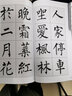 人家停車
坐愛楓林
晚霜葉紅
於二月花